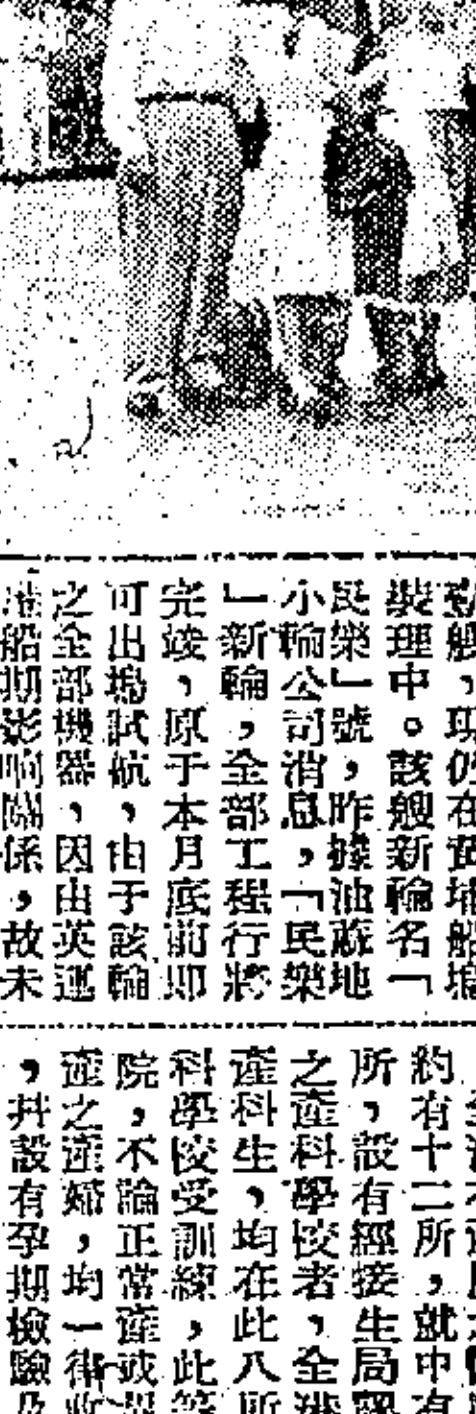 艘，現仍在黃埔船塢
裝理中。該艘新輪名「
民樂」號，昨據油蔴地
小輪公司消息，「民樂
」新輪，全部工程行將
完竣，原于本月底前即
可出塢試航，由于該輪
之全部機器，因由英運
港船期影响關係，故未
約有十二所，就中有
所，設有經接生局
之產科學校者，全港
產科生，均在此八所
科學校受訓練，此等
院，不論正常產或
產之產婦，均一律收
，幷設有孕期檢驗及